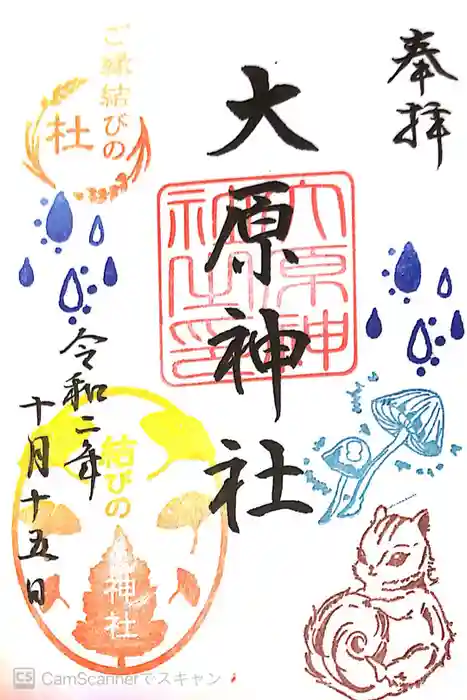 奉拝
大原神社
大原神社之印
令和二年
十月十五日
ご縁結びの
社
結びの
神社
CS CamScannerでスキャン